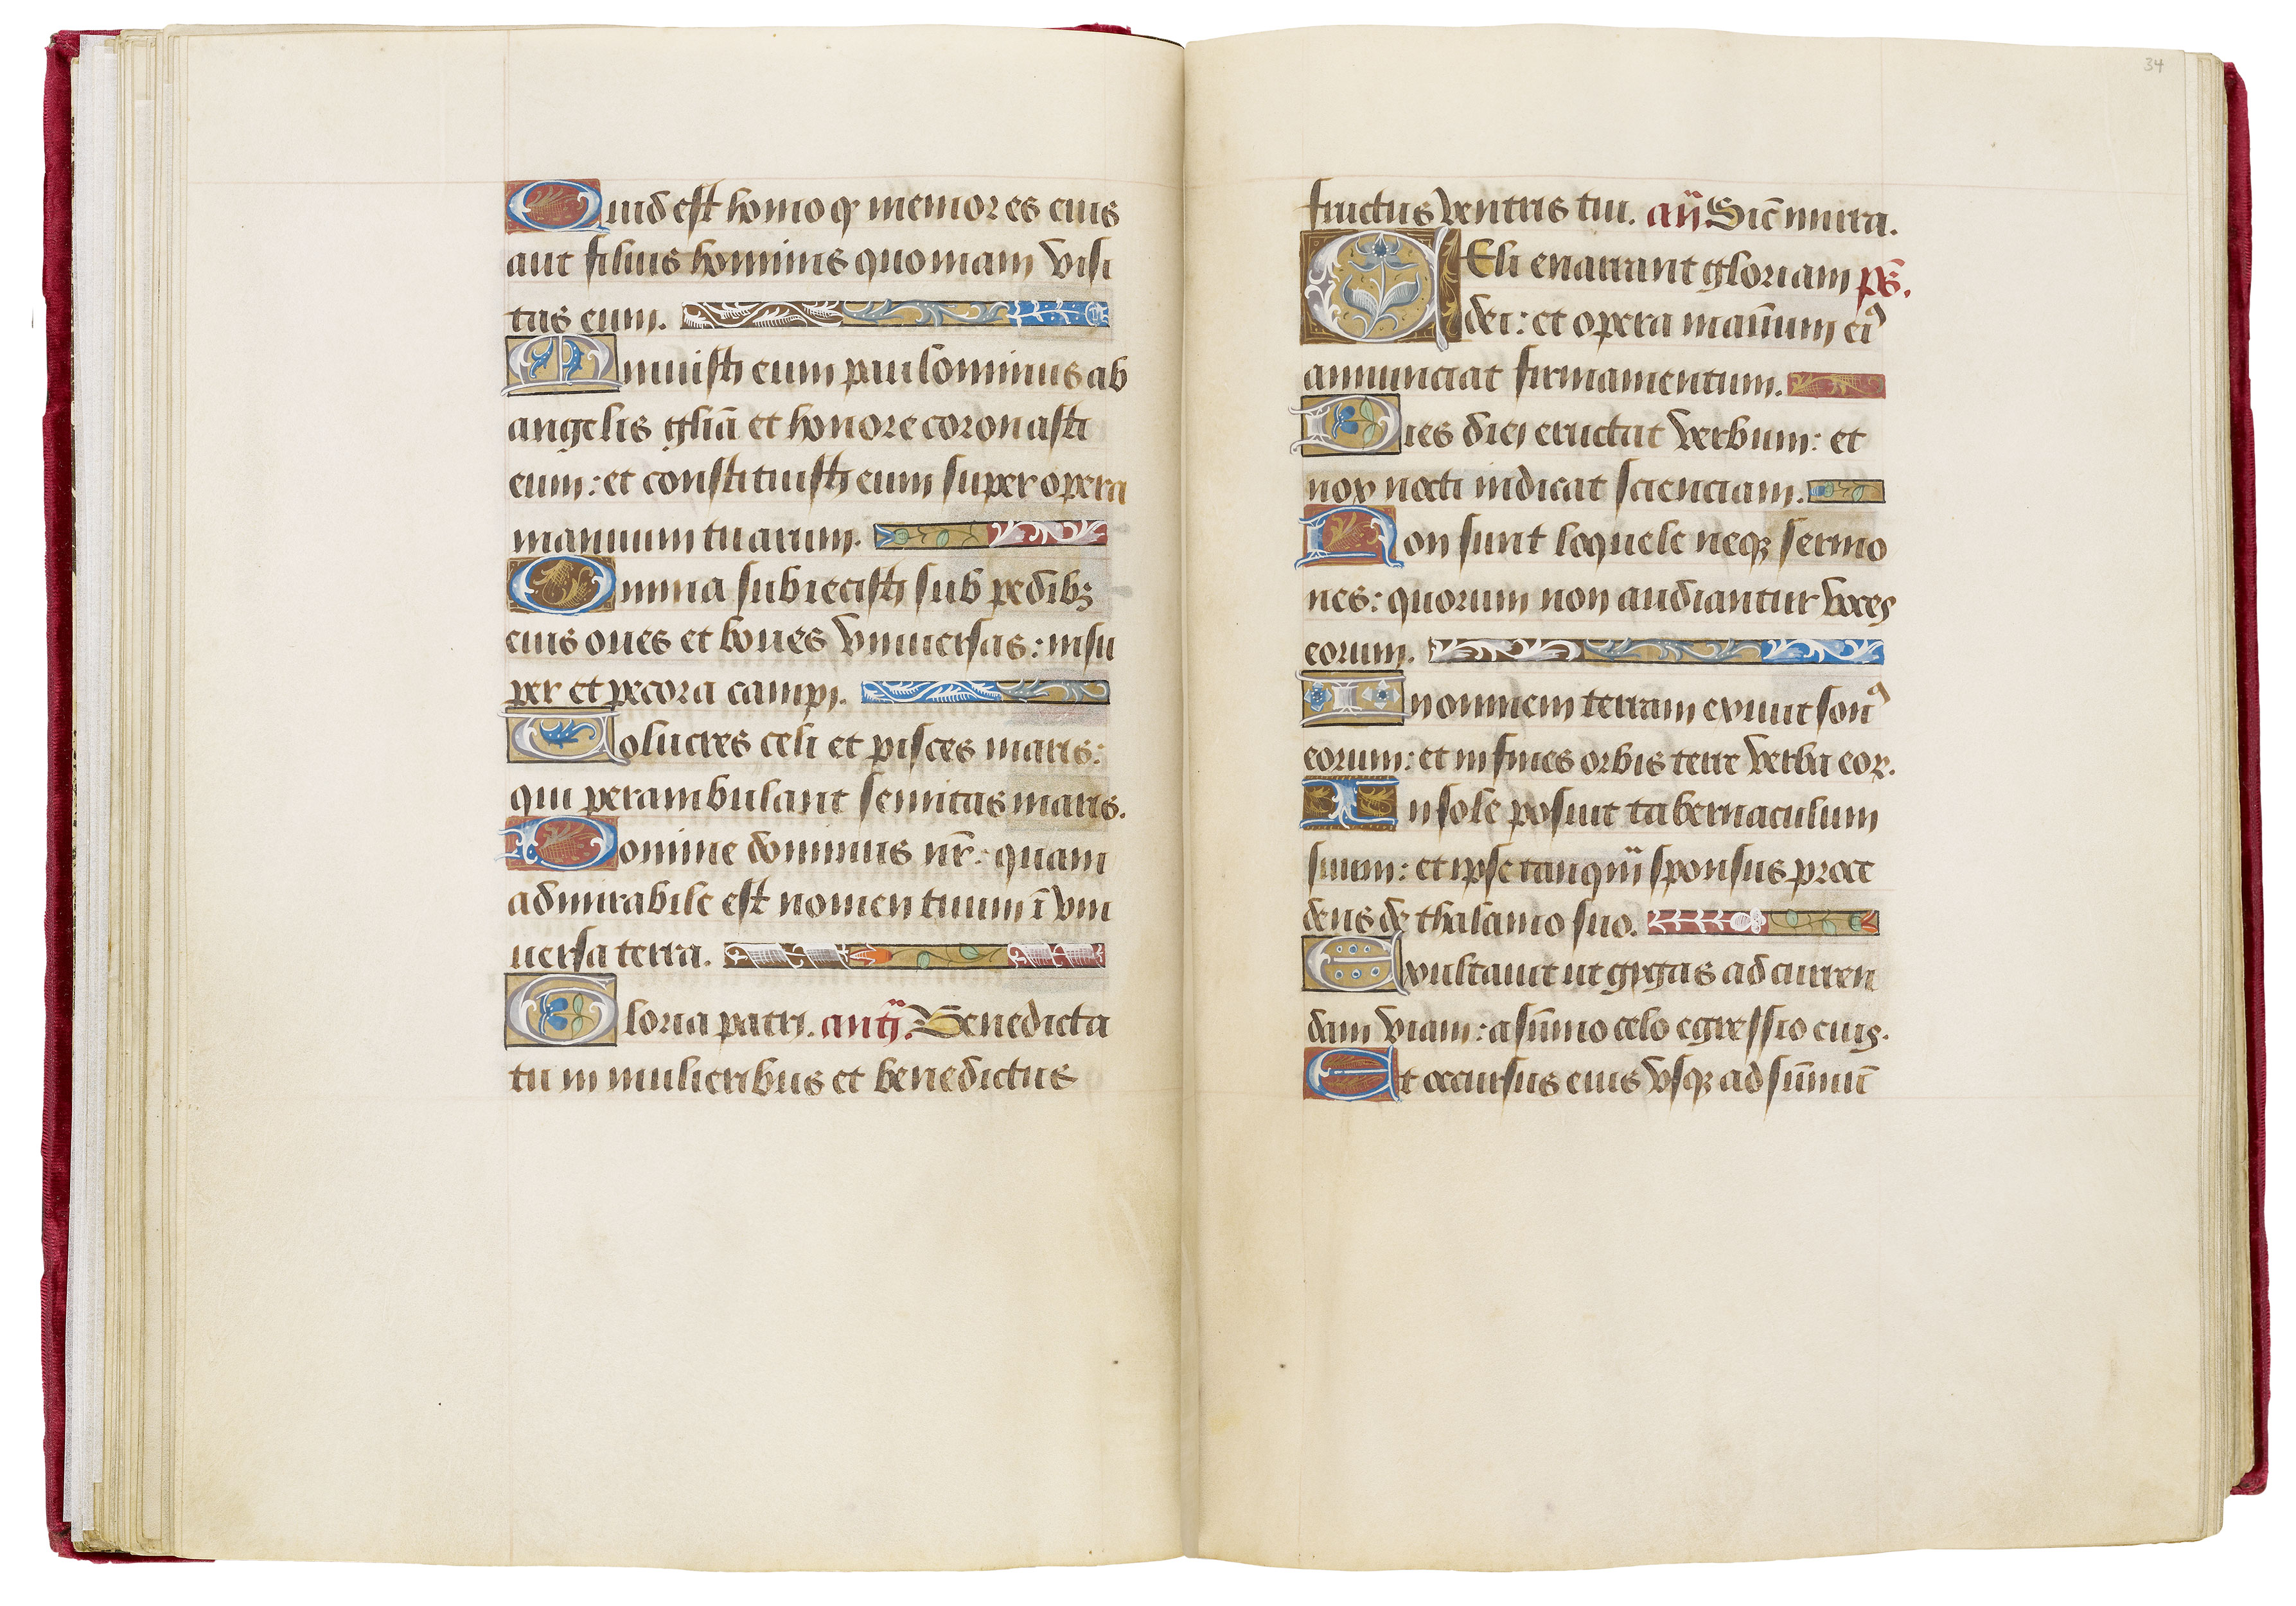 Quid est homo q memor es eius
aut filius hominis quoniam visi
tas eum.
Minuisti eum paulominus ab
angelis gliā et honore coronasti
eum: et constituisti eum super opera
manuum tuarum.
Omnia subiecisti sub pedibꝫ
eius oues et boues vniuersas: insu
per et pecora campi.
Volucres celi et pisces maris:
qui perambulant semitas maris.
Domine dominus nr̄: quam
admirabile est nomen tuum ī vni
uersa terra.
Gloria patri. antī. Benedicta
tu in mulieribus et benedictus
34
fructus ventris tui. añ Sic̄ mirra.
CEli enarrant gloriam ps̄.
dei: et opera manūum eiꝰ
annunciat firmamentum.
Dies diei eructat verbum: et
nox nocti indicat scienciam.
Non sunt loquele neqꝫ sermo
nes: quorum non audiantur voces
eorum.
In omnem terram exiuit sonꝰ
eorum: et in fines orbis terre verba eoꝝ.
In sole posuit tabernaculum
suum: et ipse tanquā sponsus proce
dens de thalamo suo.
Exultauit ut gygas ad curren
dam viam: a sūmo celo egressio eius.
Et occursus eius vsqꝫ ad sūmū